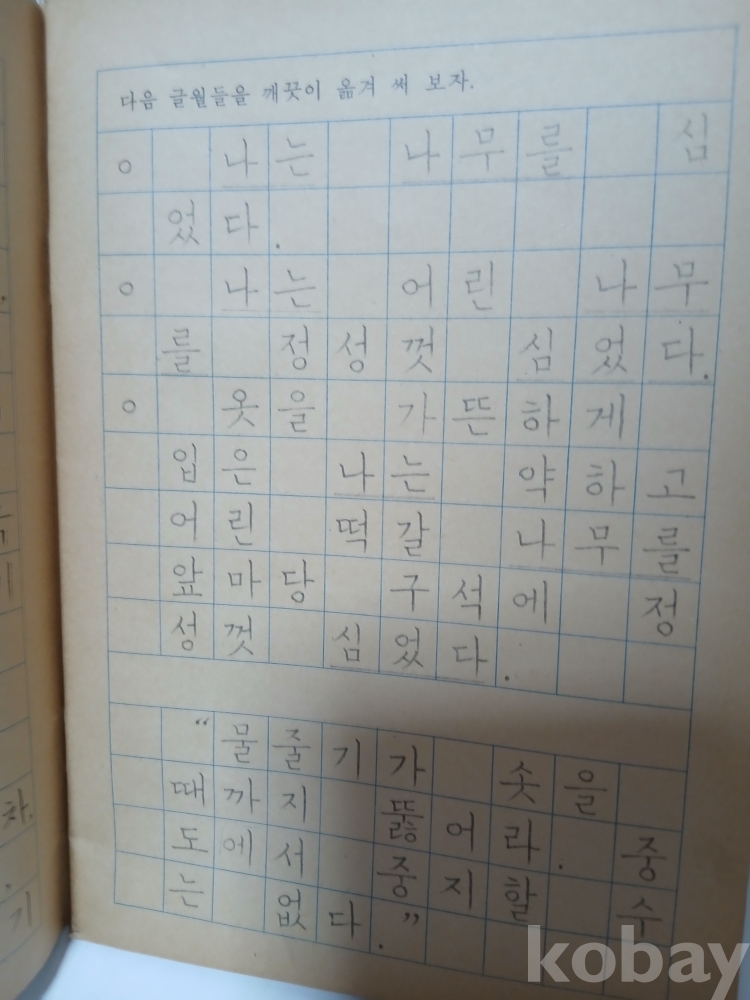 다음 글월들을 깨끗이 옮겨 써 보자.
○ 나는 나무를 심
었다.
○ 나는 어린 나무
를 정성껏 심었다.
○ 옷을 가뜬하게
입은 나는 약하고
어린 떡갈 나무를
앞마당 구석에 정
성껏 심었다.
“물줄기가 솟을
때까지 뚫어라. 중
도에서 중지할 수
는 없다.”
차.
기
kobay